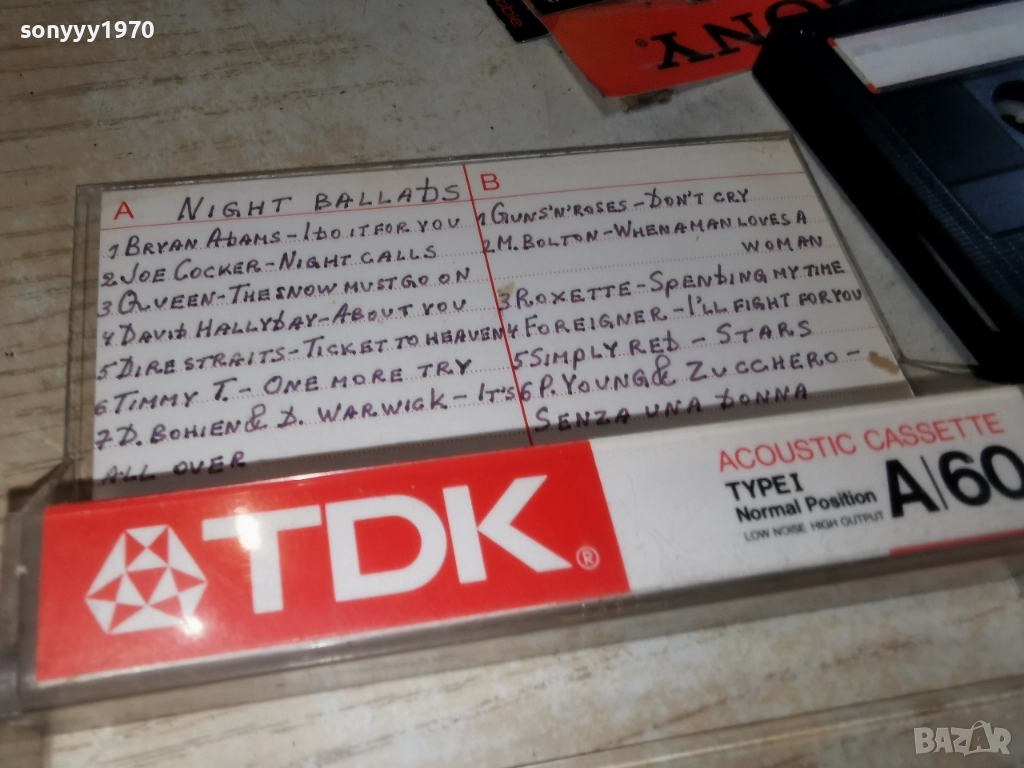 sonyyy1970
SONY
A NIGHT BALLADS
1 BRYAN ADAMS-I DO IT FOR YOU
2 JOE COCKER-NIGHT CALLS
3 QUEEN-THE SNOW MUST GO ON
4 DAVID HALLYDAY-ABOUT YOU
5 DIRE STRAITS-TICKET TO HEAVEN
6 TIMMY T.-ONE MORE TRY
7 D. BOHIEN & D. WARWICK-IT'S
ALL OVER
B
1 GUNS'N'ROSES-DON'T CRY
2 M. BOLTON-WHEN A MAN LOVES A
WOMAN
3 ROXETTE-SPENDING MY TIME
4 FOREIGNER-I'LL FIGHT FOR YOU
5 SIMPLY RED - STARS
6 P. YOUNG & ZUCCHERO -
SENZA UNA DONNA
TDK®
ACOUSTIC CASSETTE
TYPE I
Normal Position
LOW NOISE HIGH OUTPUT
A/60
BAZAR